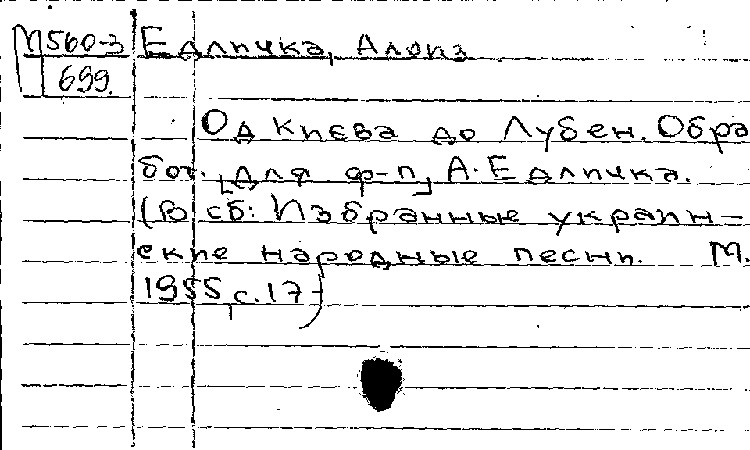 М560-3 Едличка, Алоиз
699.
Од Києва до Лубен. Обра
бот. [для ф-п] А. Едличка.
(В сб: Избранные украин-
ские народные песни. М.
1955, с. 17)